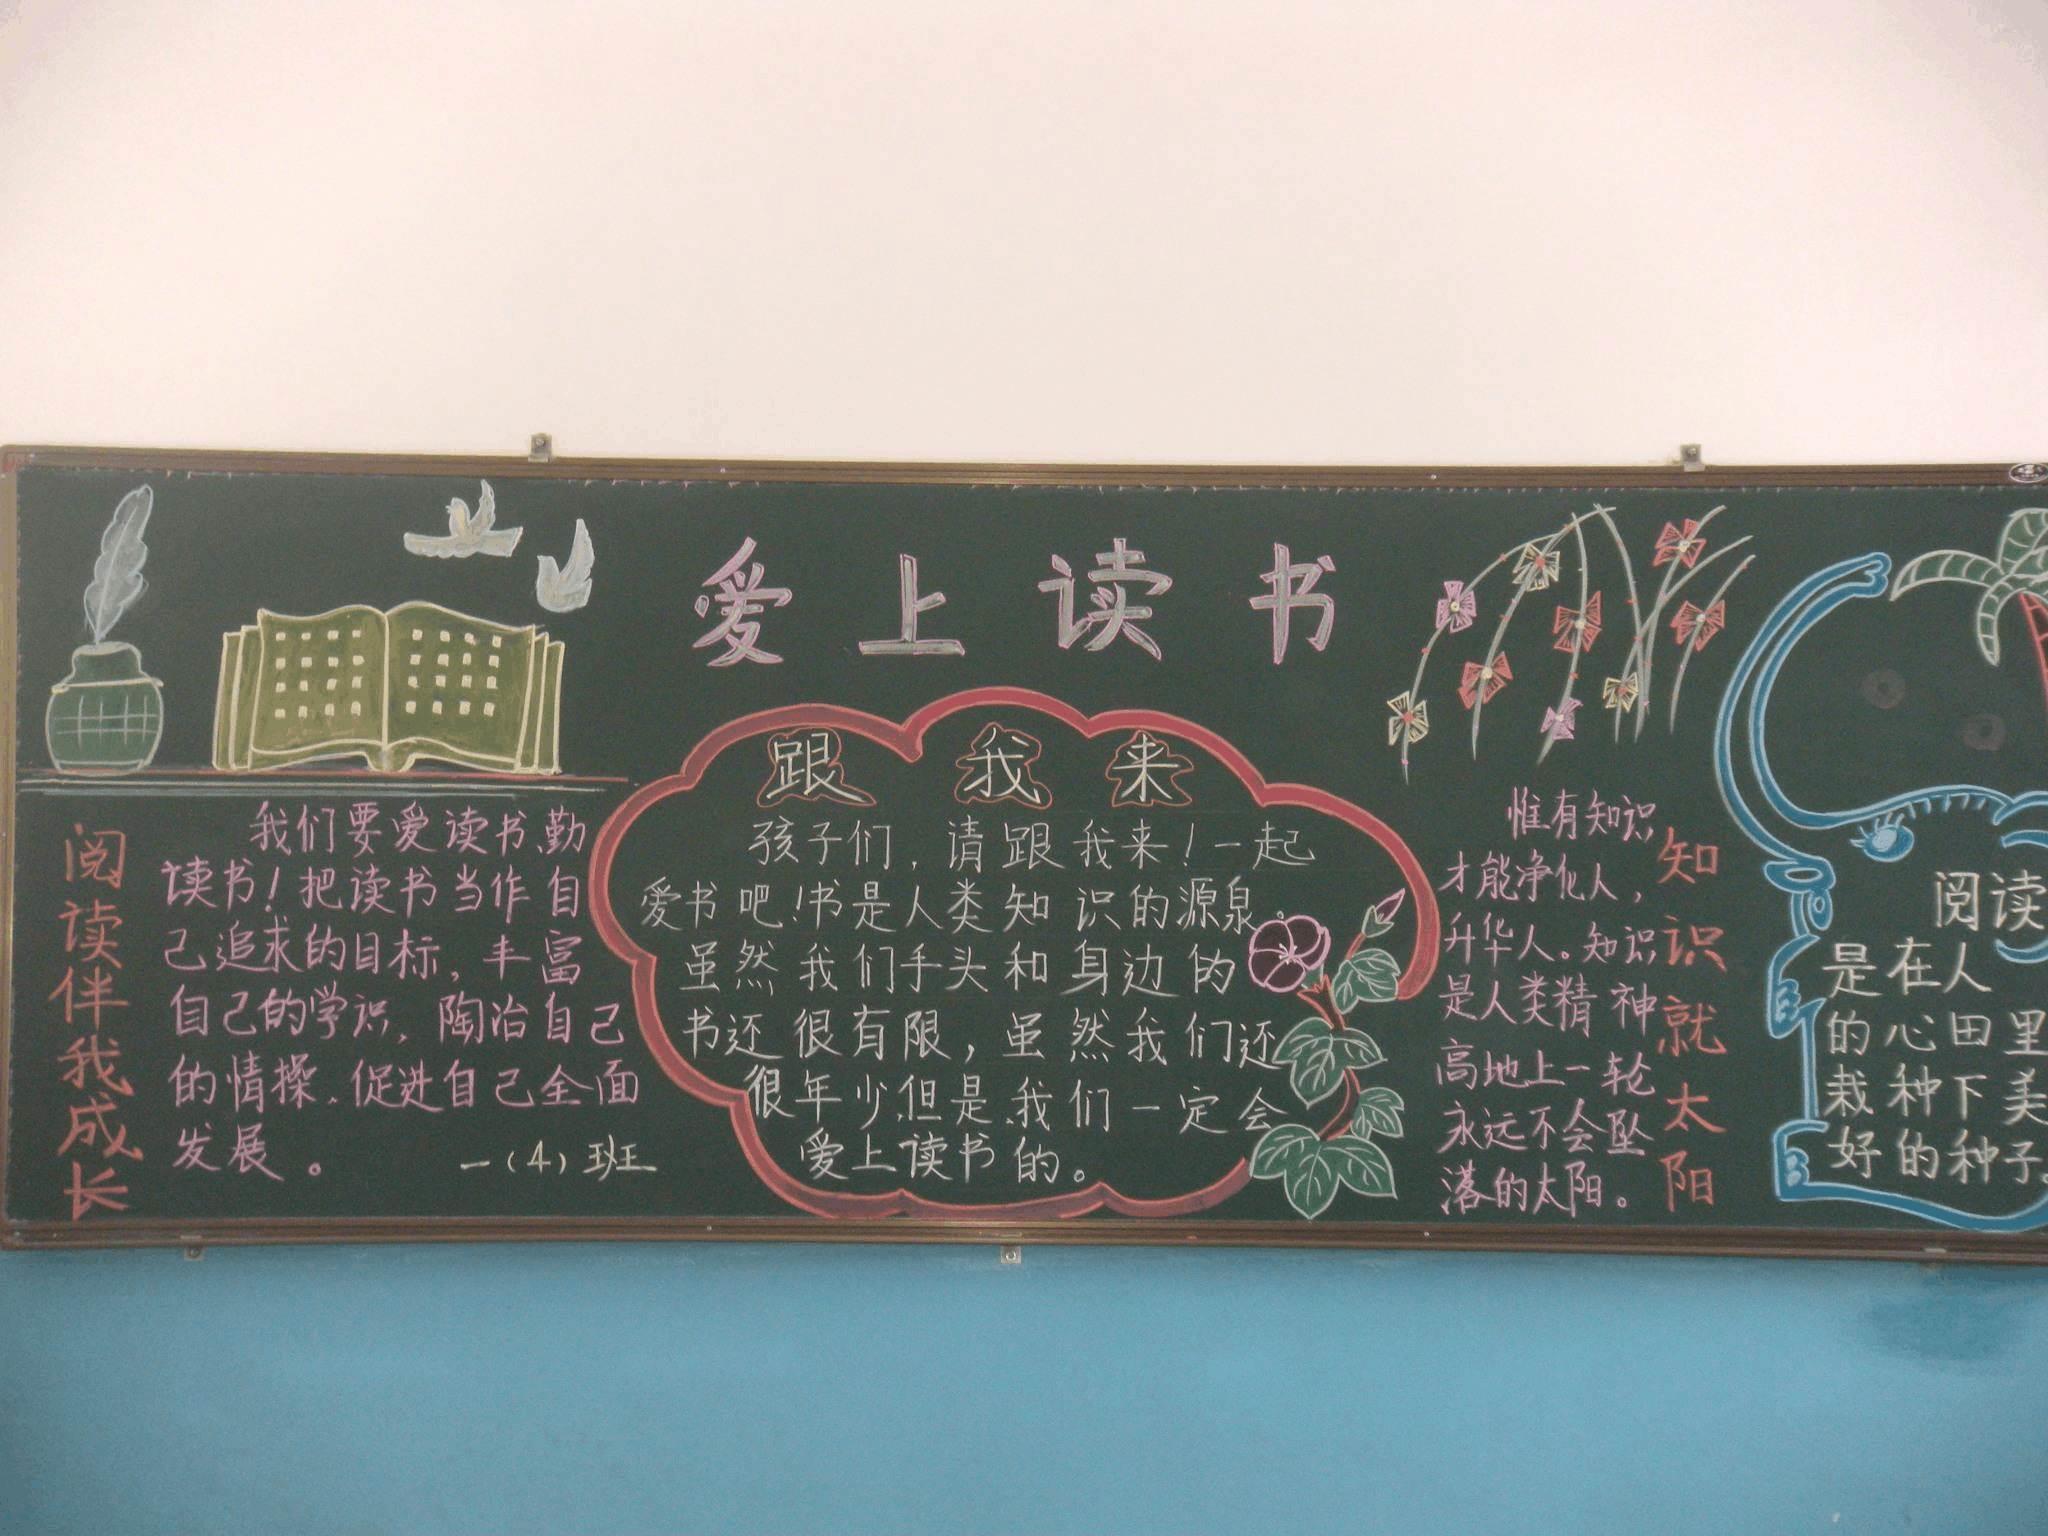 爱上读书
阅读伴我成长
我们要爱读书勤
读书！把读书当作自
己追求的目标，丰富
自己的学识，陶冶自己
的情操，促进自己全面
发展。
一（4）班
跟我来
孩子们，请跟我来！一起
爱书吧！书是人类知识的源泉。
虽然我们手头和身边的
书还很有限，虽然我们还
很年少，但是，我们一定会
爱上读书的。
惟有知识
才能净化人，
升华人。知识
是人类精神
高地上一轮
永远不会坠
落的太阳。
知识就太阳
阅读
是在人
的心田里
栽种下美
好的种子。